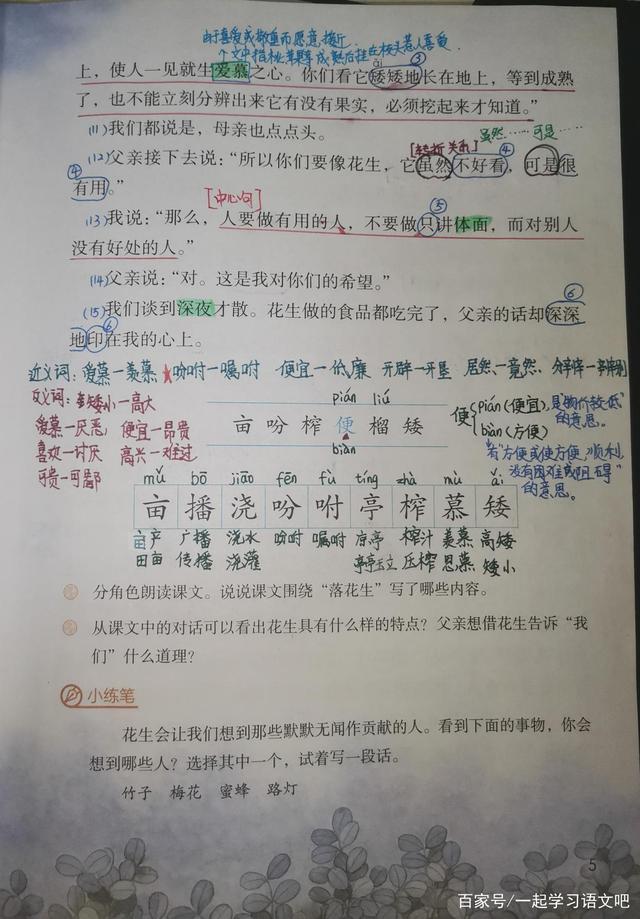 由于喜爱或敬重而愿意接近
文中指桃苹果成熟后挂在枝头惹人喜爱
上，使人一见就生爱慕之心。你们看它矮矮地长在地上，等到成熟
③
ǎi
了，也不能立刻分辨出来它有没有果实，必须挖起来才知道。”
(11)我们都说是，母亲也点点头。
[转折关系] 虽然……可是……
(12)父亲接下去说：“所以你们要像花生，它虽然不好看，可是很
④
④
有用。”
[中心句]
⑤
(13)我说：“那么，人要做有用的人，不要做只讲体面，而对别人
没有好处的人。”
(14)父亲说：“对。这是我对你们的希望。”
⑥
(15)我们谈到深夜才散。花生做的食品都吃完了，父亲的话却深深
⑥
地印在我的心上。
近义词：爱慕—羡慕 ★吩咐—嘱咐 便宜—低廉 开辟—开垦 居然—竟然、分辨—辨别
反义词：矮小—高大
爱慕—厌恶 便宜—昂贵
喜欢—讨厌 高兴—难过
可贵—可鄙
pián liú
亩 吩 榨 便 榴 矮
biàn
便 pián(便宜)，是“物价较低”的意思。
biàn(方便)
有“方便或使方便，顺利，
没有困难或阻碍”
的意思。
mǔ bō jiāo fēn fù tíng zhà mù ǎi
亩 播 浇 吩 咐 亭 榨 慕 矮
亩产 广播 浇水 吩咐 嘱咐 榨汁 羡慕 高矮
田亩 传播 浇灌 亭亭玉立 压榨 思慕 矮小
分角色朗读课文。说说课文围绕“落花生”写了哪些内容。
从课文中的对话可以看出花生具有什么样的特点？父亲想借花生告诉“我
们”什么道理？
小练笔
花生会让我们想到那些默默无闻作贡献的人。看到下面的事物，你会
想到哪些人？选择其中一个，试着写一段话。
竹子 梅花 蜜蜂 路灯
5
百家号/一起学习语文吧